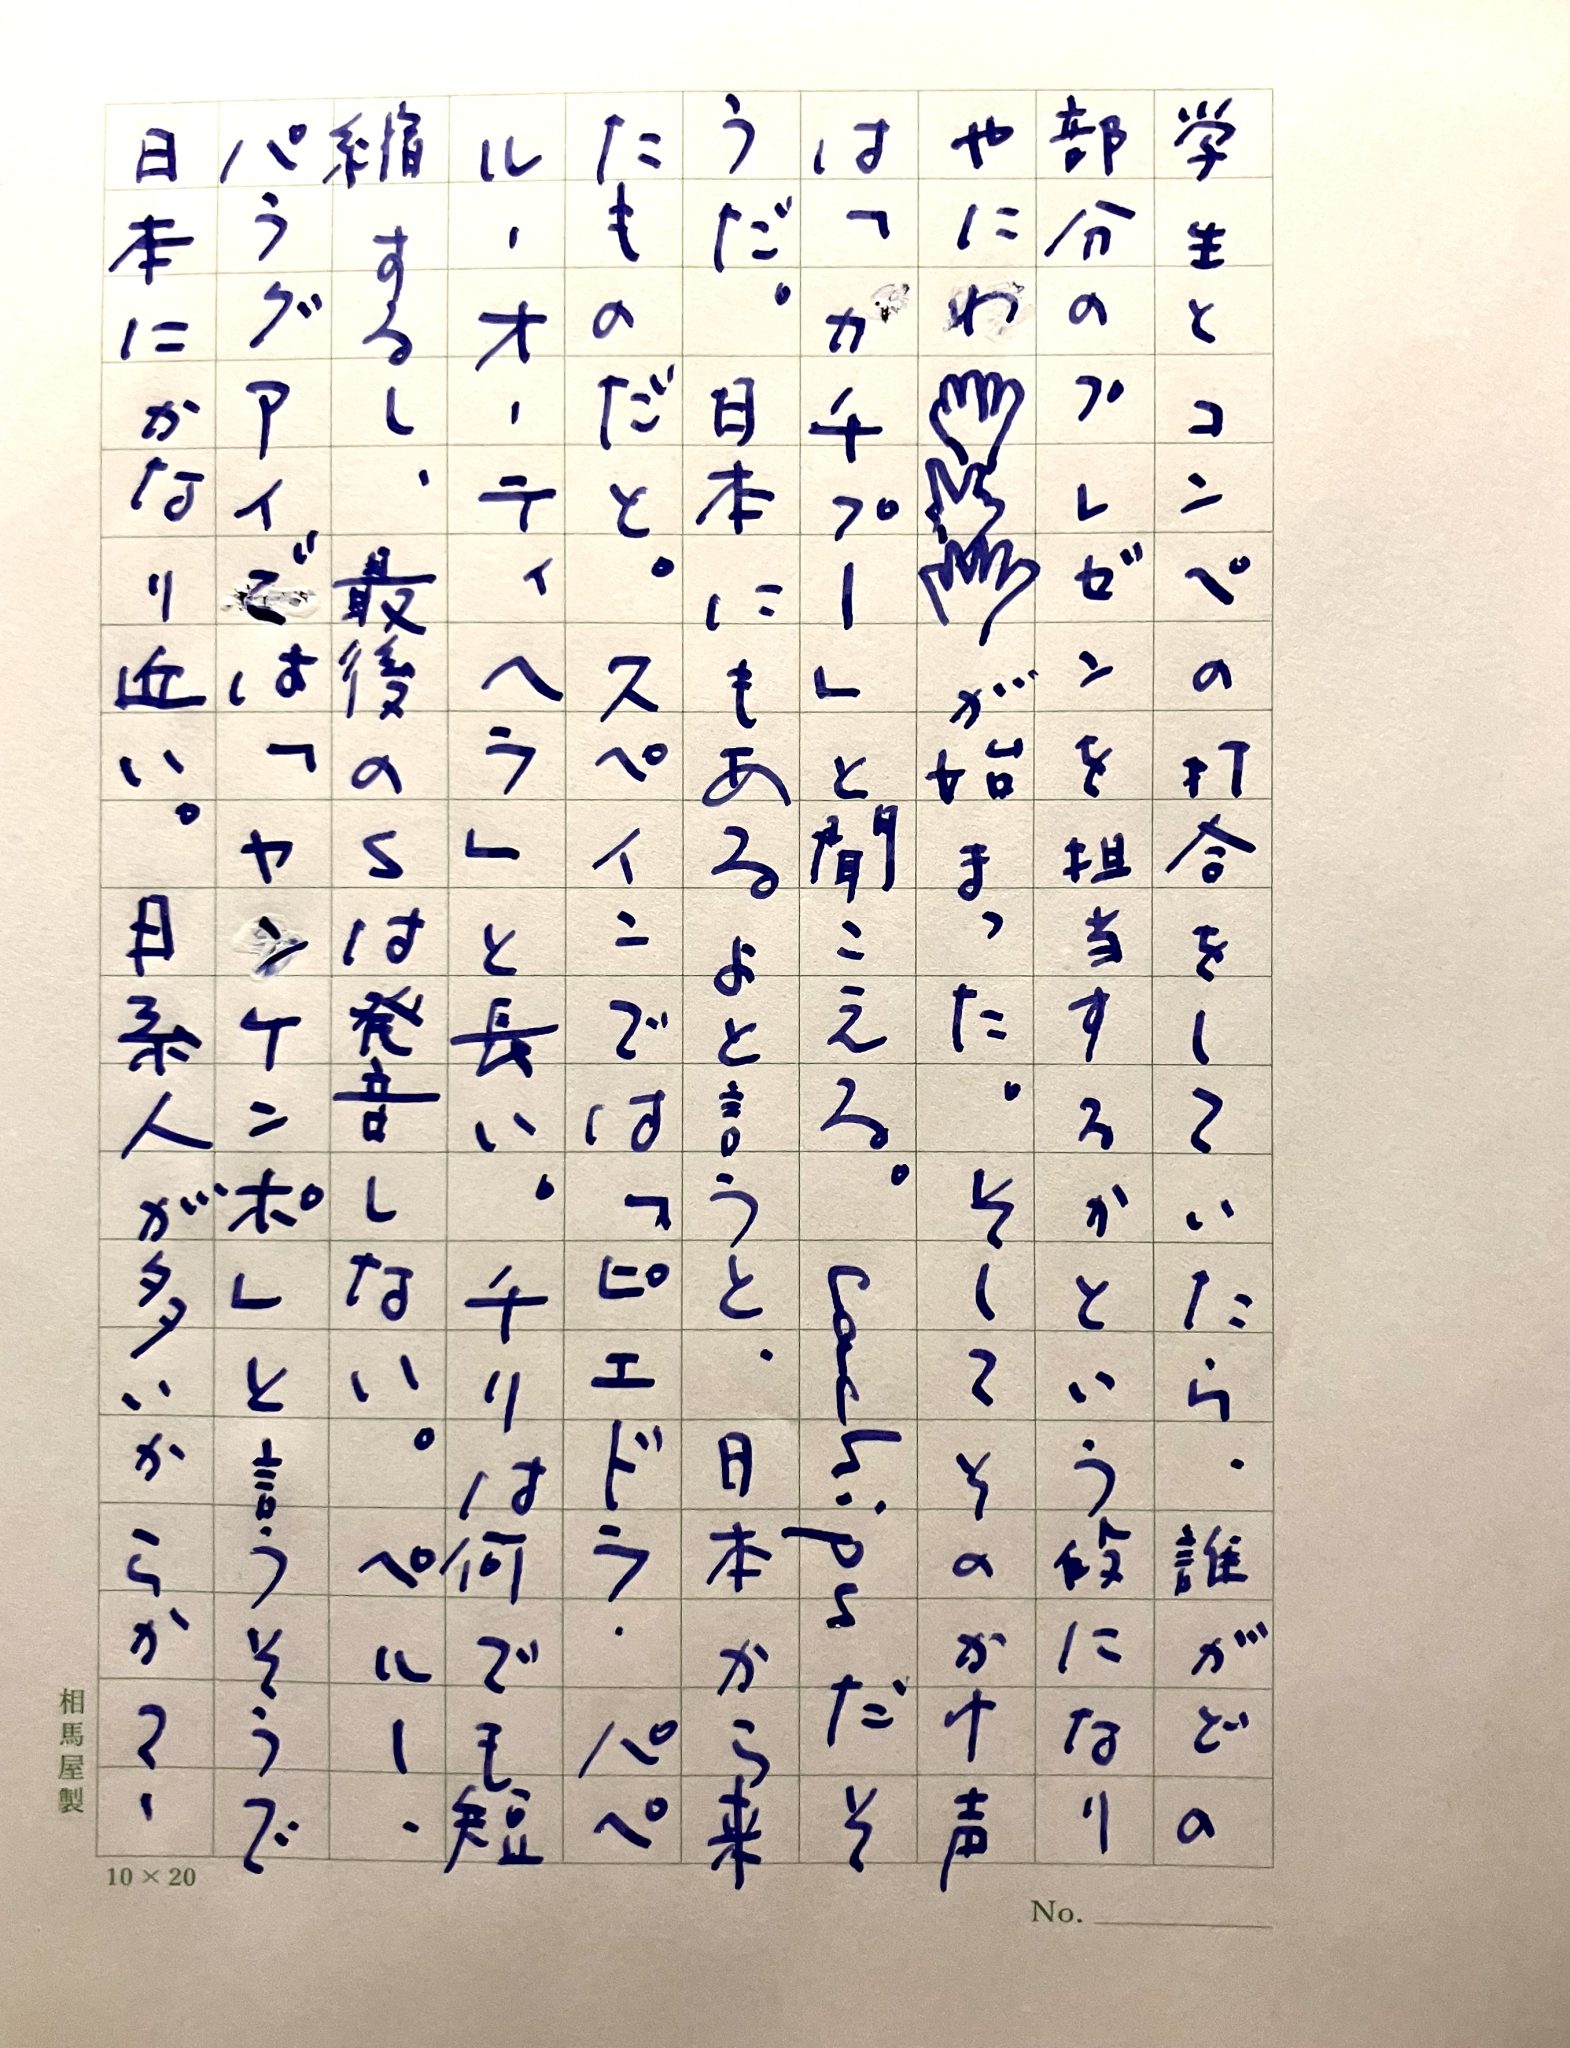 学生とコンペの打合をしていたら、誰がどの
部分のプレゼンを担当するかという段になり
やにわが始まった。そしてそのかけ声
は「カチプー」と聞こえる。だそ
うだ。日本にもあるよと言うと、日本から来
たものだと。スペインでは「ピエドラ、パペ
ル、オ、ティヘラ」と長い。チリは何でも短
縮するし、最後のsは発音しない。ペルー、
パラグアイでは「ヤンケンポ」と言うそうで
日本にかなり近い。日系人が多いからかて、
相馬屋製
10×20
No.